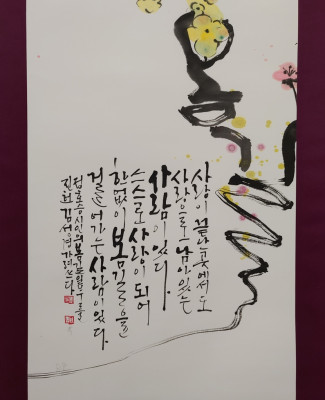 사랑이 끝난 곳에서도
사랑으로 남아있는
사람이 있다
스스로 사랑이 되어
한없이 봄길을
걸어가는 사람이 있다.
정호승시인의 봄길
쓰다